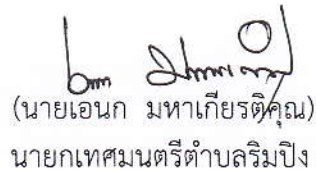 (นายเอนก มหาเกียรติคุณ)
นายกเทศมนตรีตำบลริมปิง